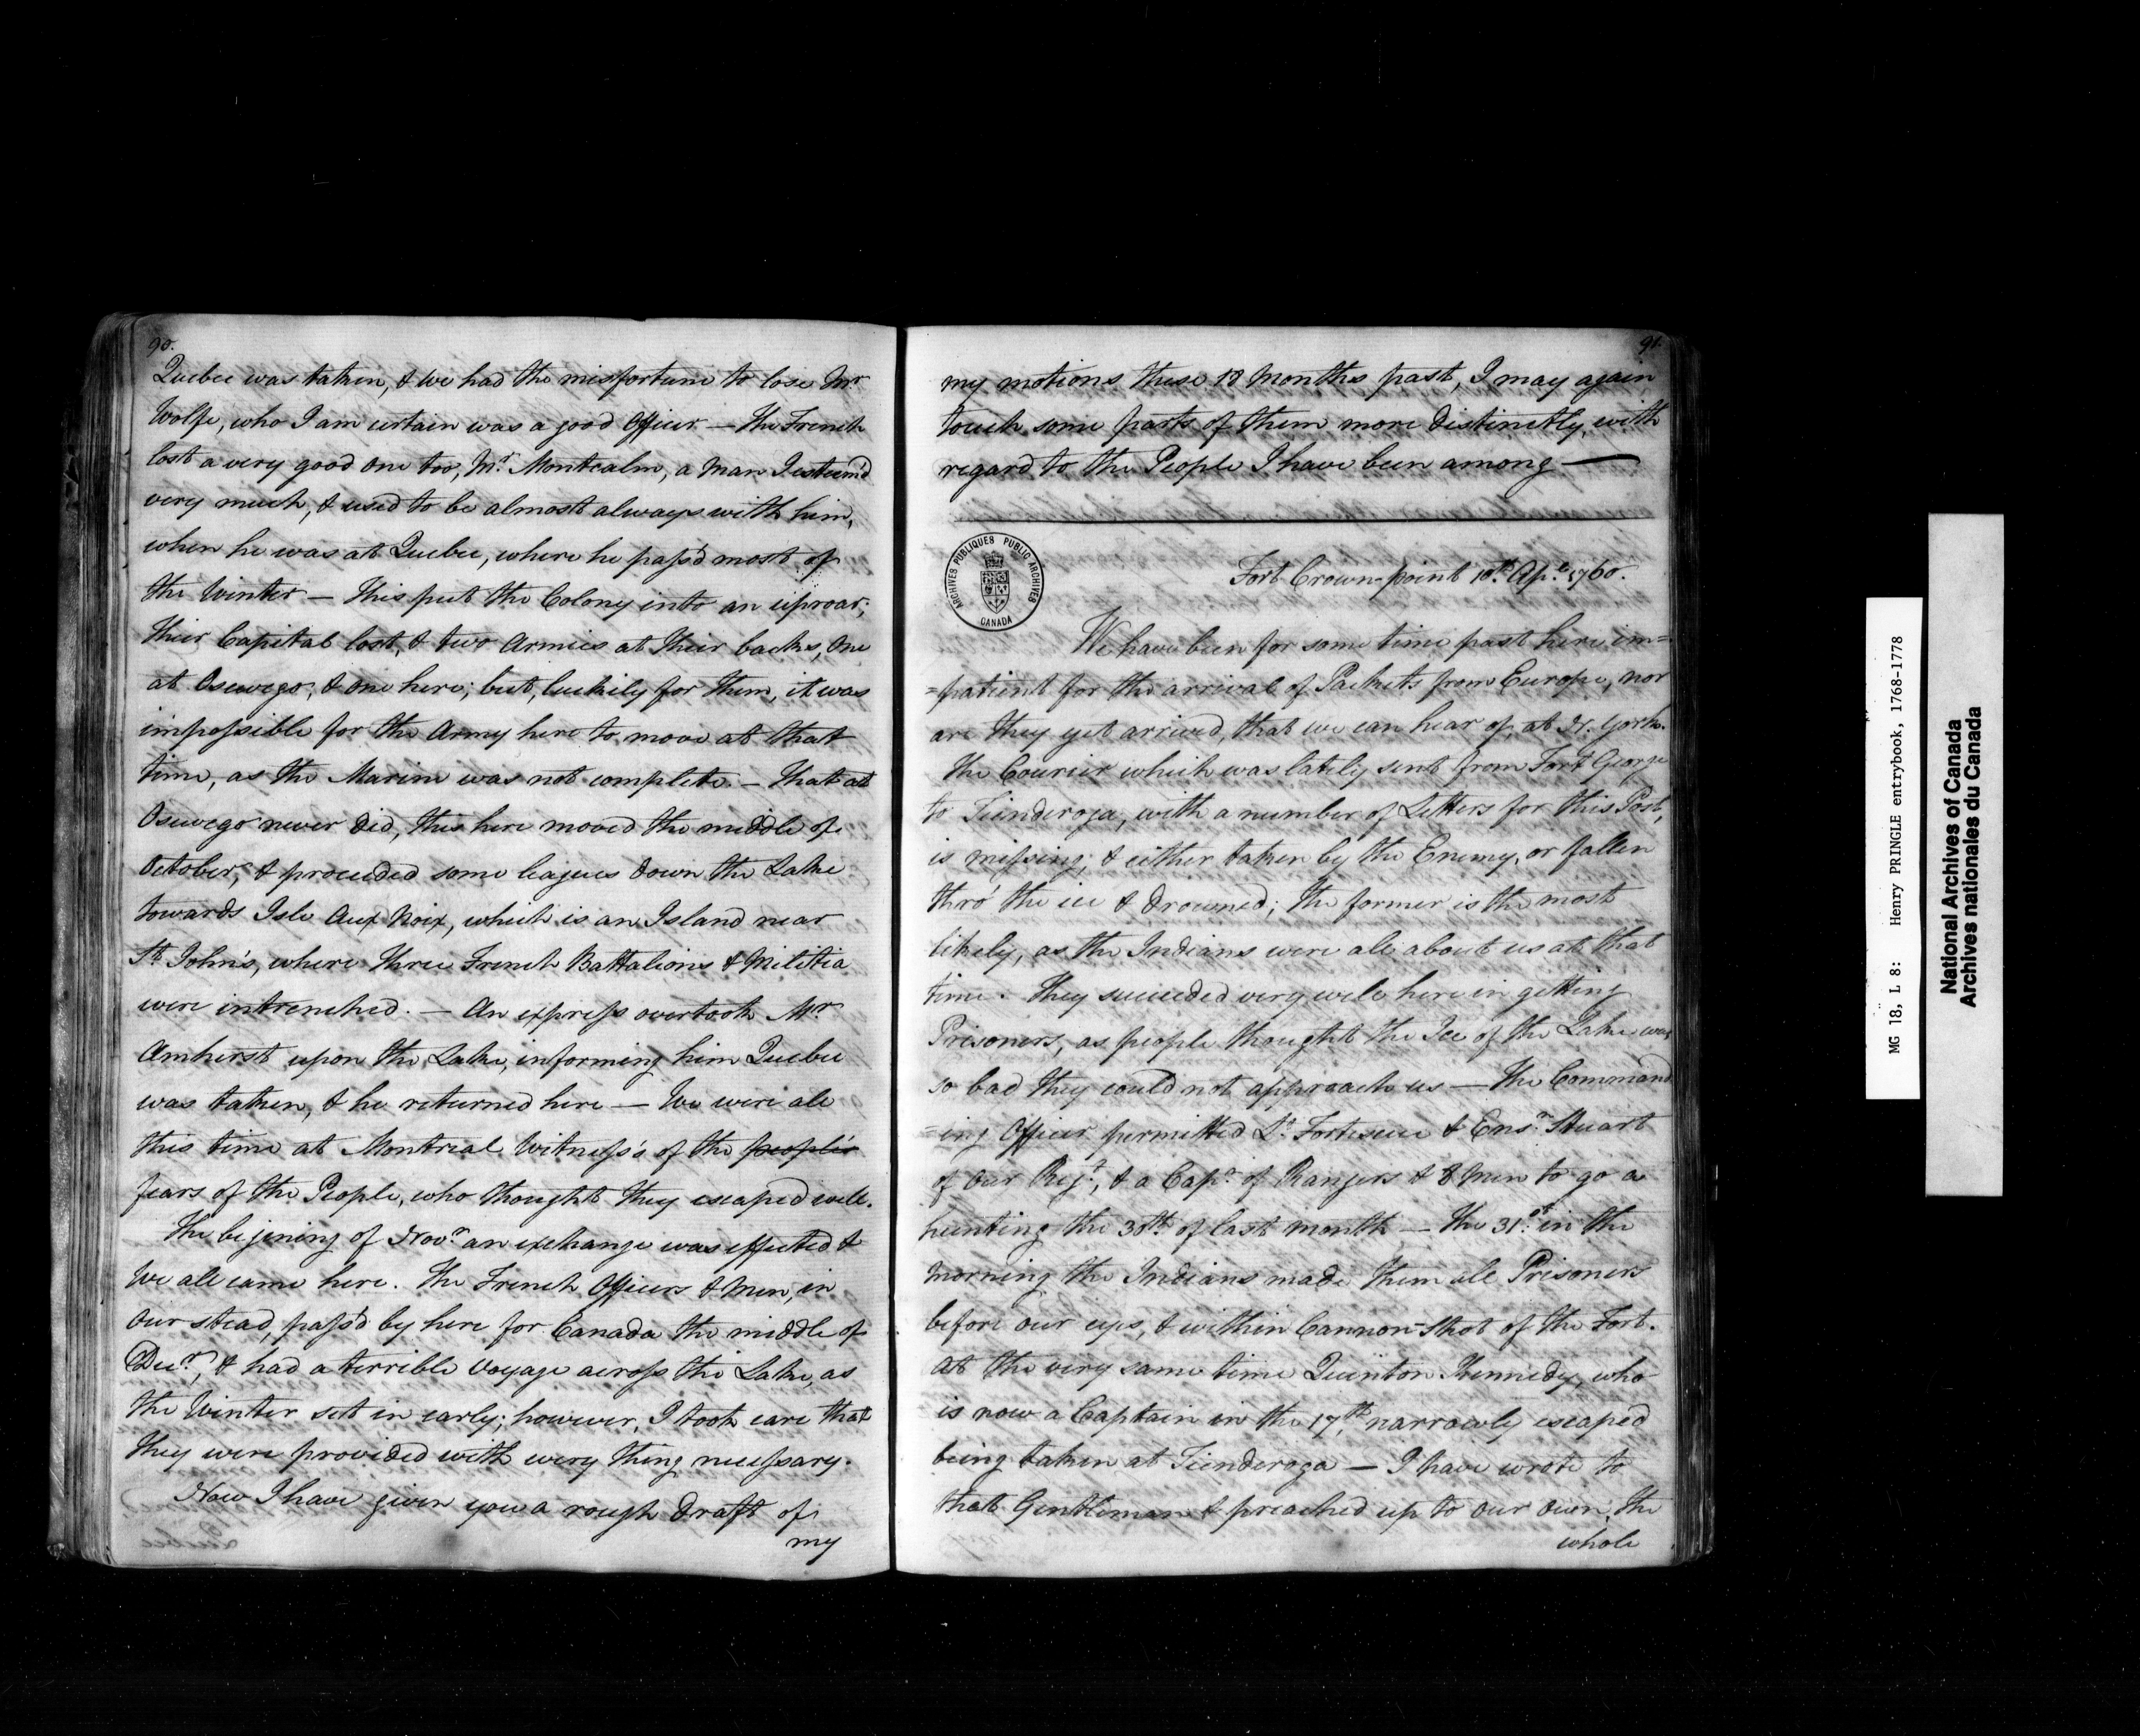 90.
Quebec was taken, & we had the misfortune to lose Mr
Wolfe, who I am certain was a good Officer — The French
lost a very good one too, Mr. Montcalm, a Man I esteem'd
very much, & used to be almost always with him,
when he was at Quebec, where he pass'd most of
the Winter — This put the Colony into an uproar;
Their Capital lost, & two Armies at Their backs, One
at Oswego, & One here; but, luckily for Them, it was
impossible for the Army here to move at that
time, as the Marine was not complete. — That at
Oswego never did, this here moved the middle of
October, & proceeded some leagues down the Lake
towards Isle Aux Noix, which is an Island near
St. John's, where Three French Battalions & Militia
were intrenched. — An express overtook Mr.
Amherst upon the Lake, informing him Quebec
was taken, & he returned here — We were all
this time at Montreal Witness's of the people's
fears of the People, who thought they escaped well.
The begining of Novr. an exchange was effected &
We all came here. The French Officers & Men, in
Our stead, pass'd by here for Canada the middle of
Decr., & had a terrible Voyage across the Lake, as
the Winter set in early; however, I took care that
They were provided with every thing necessary.
Now I have given you a rough Draft of
my
91.
my motions these 18 Months past, I may again
touch some parts of them more distinctly, with
regard to the People I have been among —
ARCHIVES PUBLIQUES PUBLIC ARCHIVES
CANADA
Fort Crown-point 10th. Apr. 1760.
We have been for some time past here im=
=patient for the arrival of Packets from Europe, nor
are they yet arrived, that we can hear of, at N. York.
The Courier which was lately sent from Fort George
to Ticonderoga, with a number of Letters for this Post,
is missing; & either taken by the Enemy, or fallen
thro' the ice & drowned; the former is the most
likely, as the Indians were all about us at that
time. They succeeded very well here in getting
Prisoners, as people thought the Ice of the Lake was
so bad they could not approach us — The Command
=ing Officer permitted Lt. Fortescue & Ensn. Stuart
of our Regt., & a Capn. of Rangers & 8 Men to go a
hunting the 30th. of last month — The 31st. in the
Morning the Indians made them all Prisoners
before our eyes, & within Cannon-Shot of the Fort.
At the very same time Quinton Kennedy, who
is now a Captain in the 17th., narrowly escaped
being taken at Ticonderoga — I have wrote to
that Gentleman & preached up to our own, the
whole
MG 18, L 8: Henry PRINGLE entrybook, 1768-1778
National Archives of Canada
Archives nationales du Canada